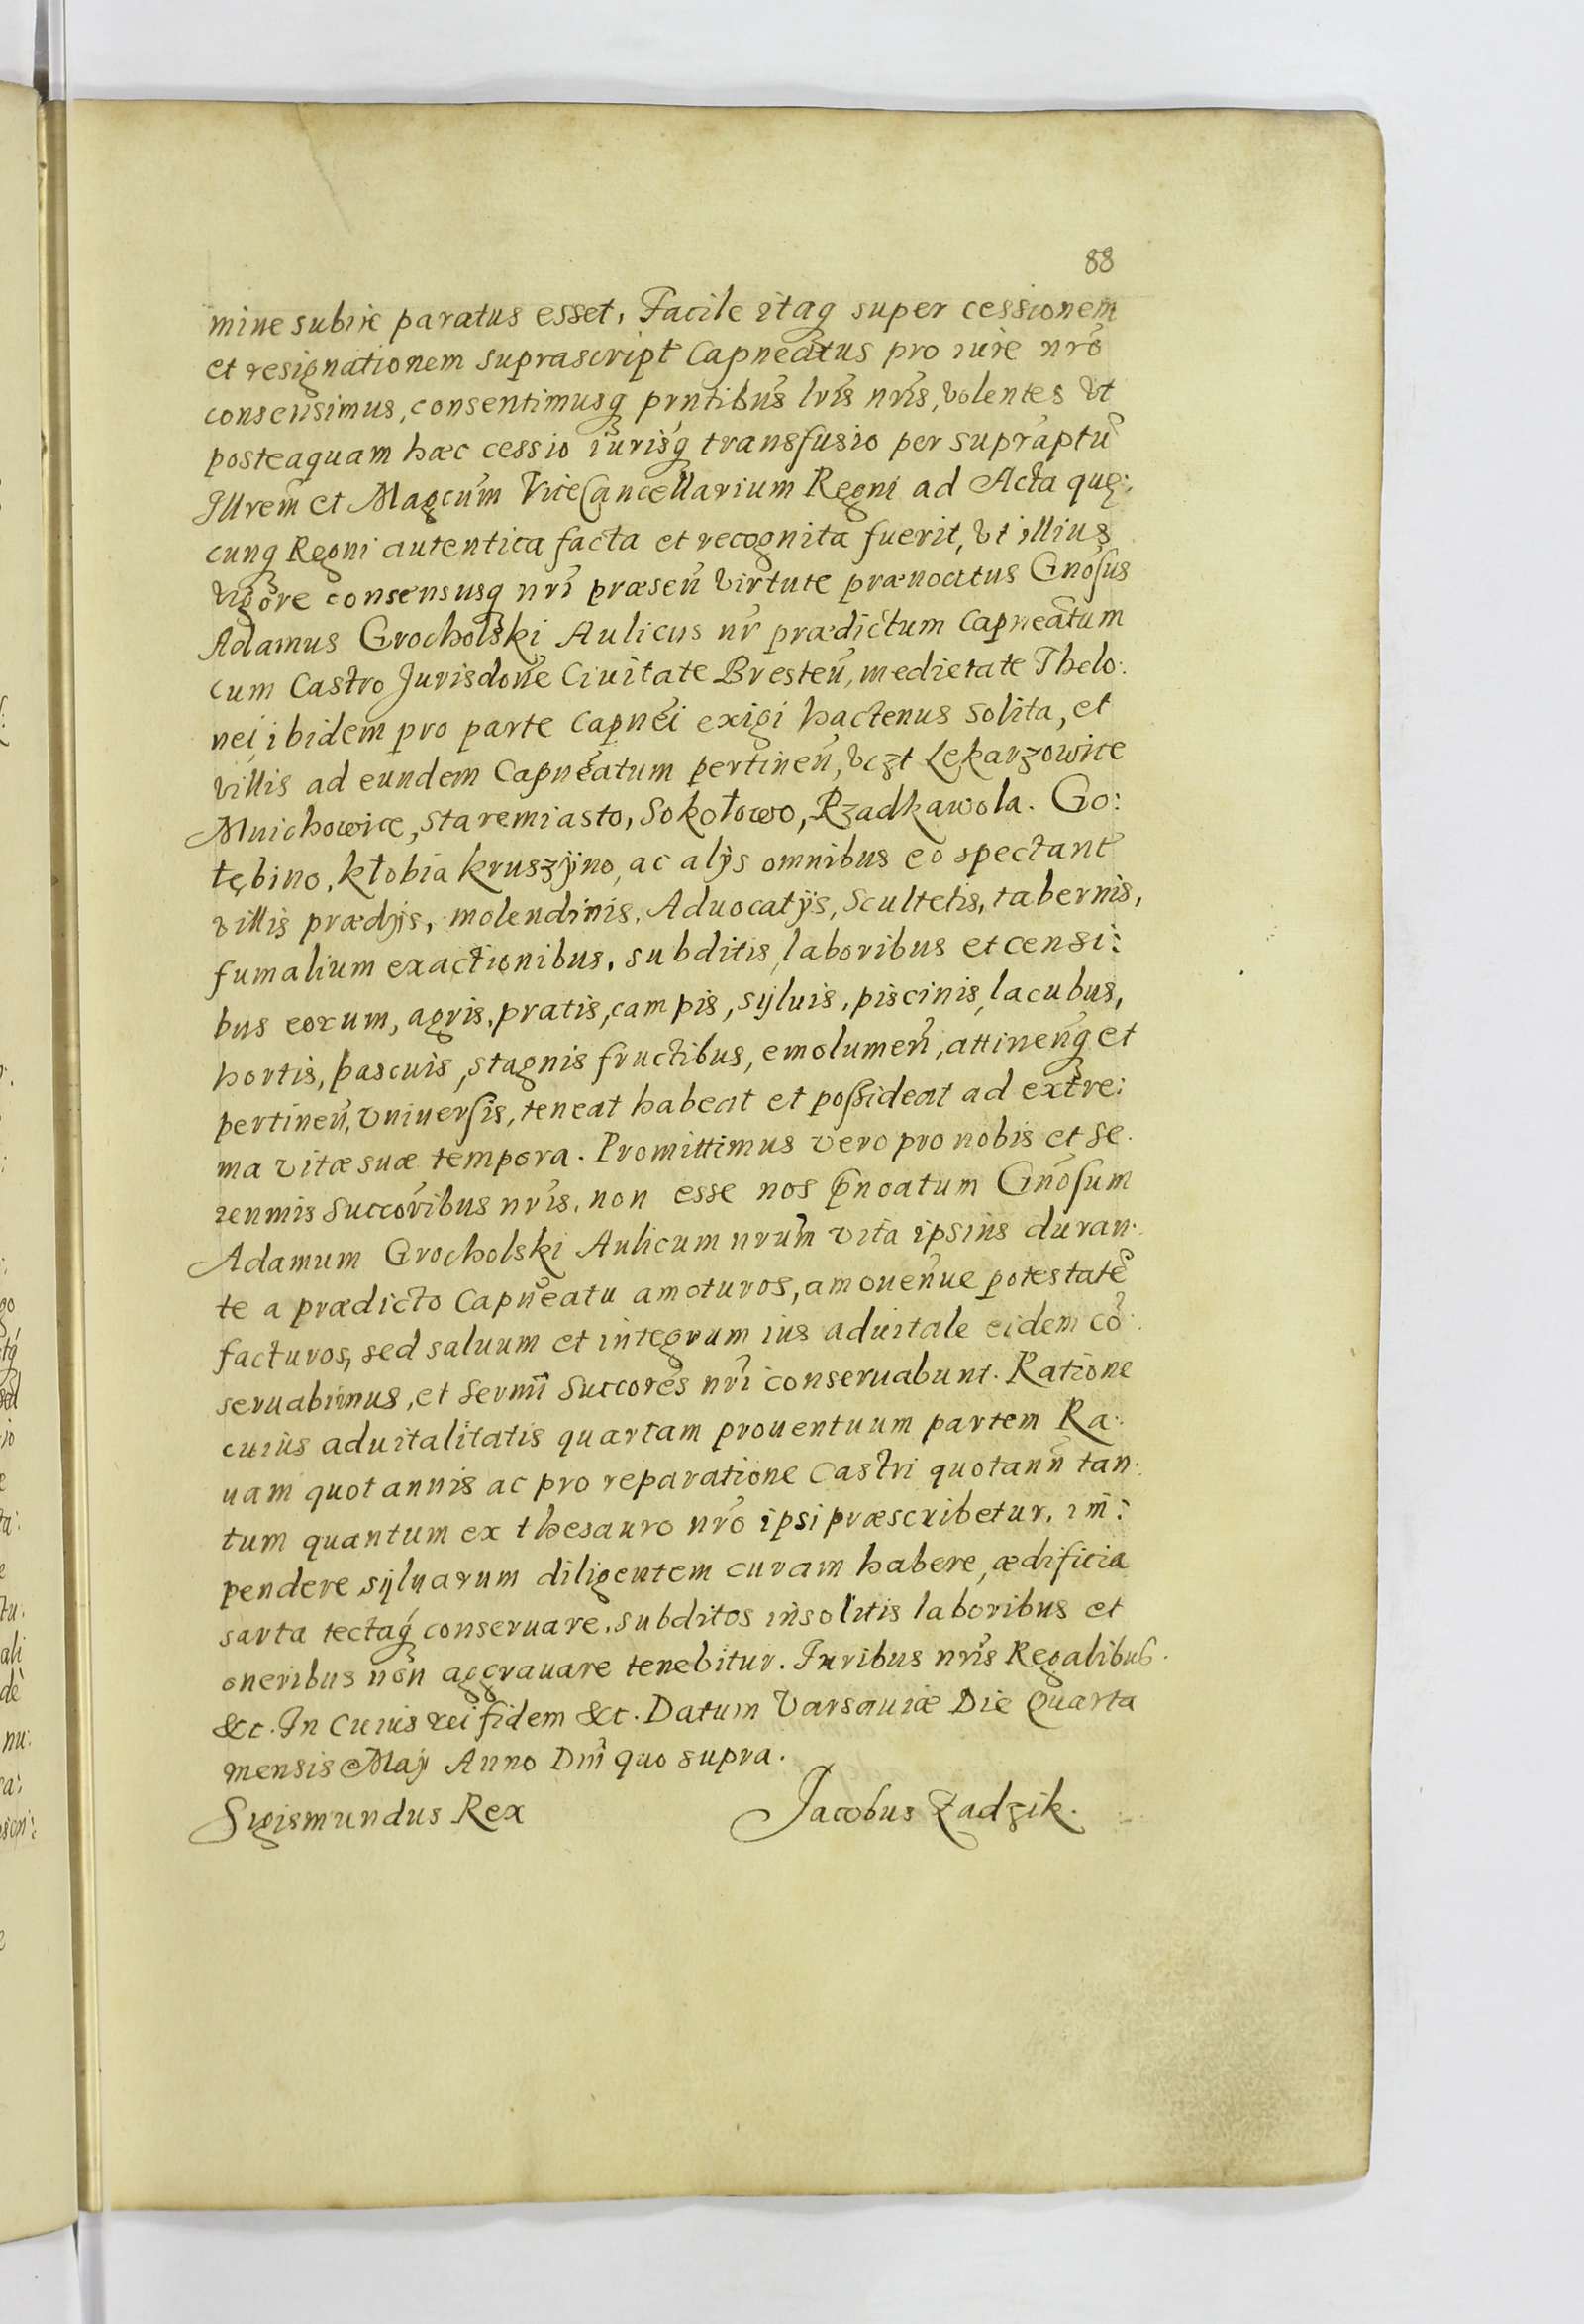 88
mine subire paratus esset, Facile itaq super cessionem
et resignationem suprascript Capneatus pro iure nro
consensimus, consentimusq prntibus lris nris, volentes vt
posteaquam hæc cessio iurisq transfusio per supraptu
Illrem et Magcum ViceCancellarium Regni ad Acta quę:
cunq Regni autentica facta et recognita fuerit, vt illius
vigore consensusq nri præsen virtute prænoatus Gnosus
Adamus Grocholski Aulicus nr prædictum Capneatum
cum Castro Jurisdone Ciuitate Bresten, medietate Thelo:
nei, ibidem pro parte Capnei exigi hactenus solita, et
villis ad eundem Capneatum pertinen, vczt Lekarzowice
Mnichowice, staremiasto, Sokołowo, Rzadkawola. Go:
łębino, kłobia kruszÿno, ac alÿs omnibus eo spectant
villis prædÿs, molendinis, Aduocatÿs, Scultetis, tabernis,
fumalium exactionibus, subditis, laboribus et censi:
bus eorum, agris, pratis, campis, sÿluis, piscinis, lacubus,
hortis, pascuis, stagnis fructibus, emolumen, attinenq et
pertinen, vniuersis, teneat habeat et possideat ad extre:
ma vitæ suæ tempora. Promittimus vero pro nobis et Se.
renmis Succoribus nris, non esse nos pnoatum Gnosum
Adamum Grocholski Aulicum nrum vita ipsius duran.
te a prædicto Capneatu amoturos, amouenue potestate
facturos, sed saluum et integrum ius aduitale eidem co.
seruabimus, et Sermi Succores nri conseruabunt. Ratione
cuius aduitalitatis quartam prouentuum partem Ra:
uam quotannis ac pro reparatione Castri quotann tan:
tum quantum ex thesauro nro ipsi præscribetur, im:
pendere sÿluarum diligentem curam habere, ædificia
sarta tectaq conseruare, subditos insolitis laboribus et
oneribus non aggrauare tenebitur. Juribus nris Regalibus.
&c. In Cuius rei fidem &c. Datum Varsauiæ Die Quarta
mensis Maÿ Anno Dni quo supra.
Sigismundus Rex Jacobus Zadzik.